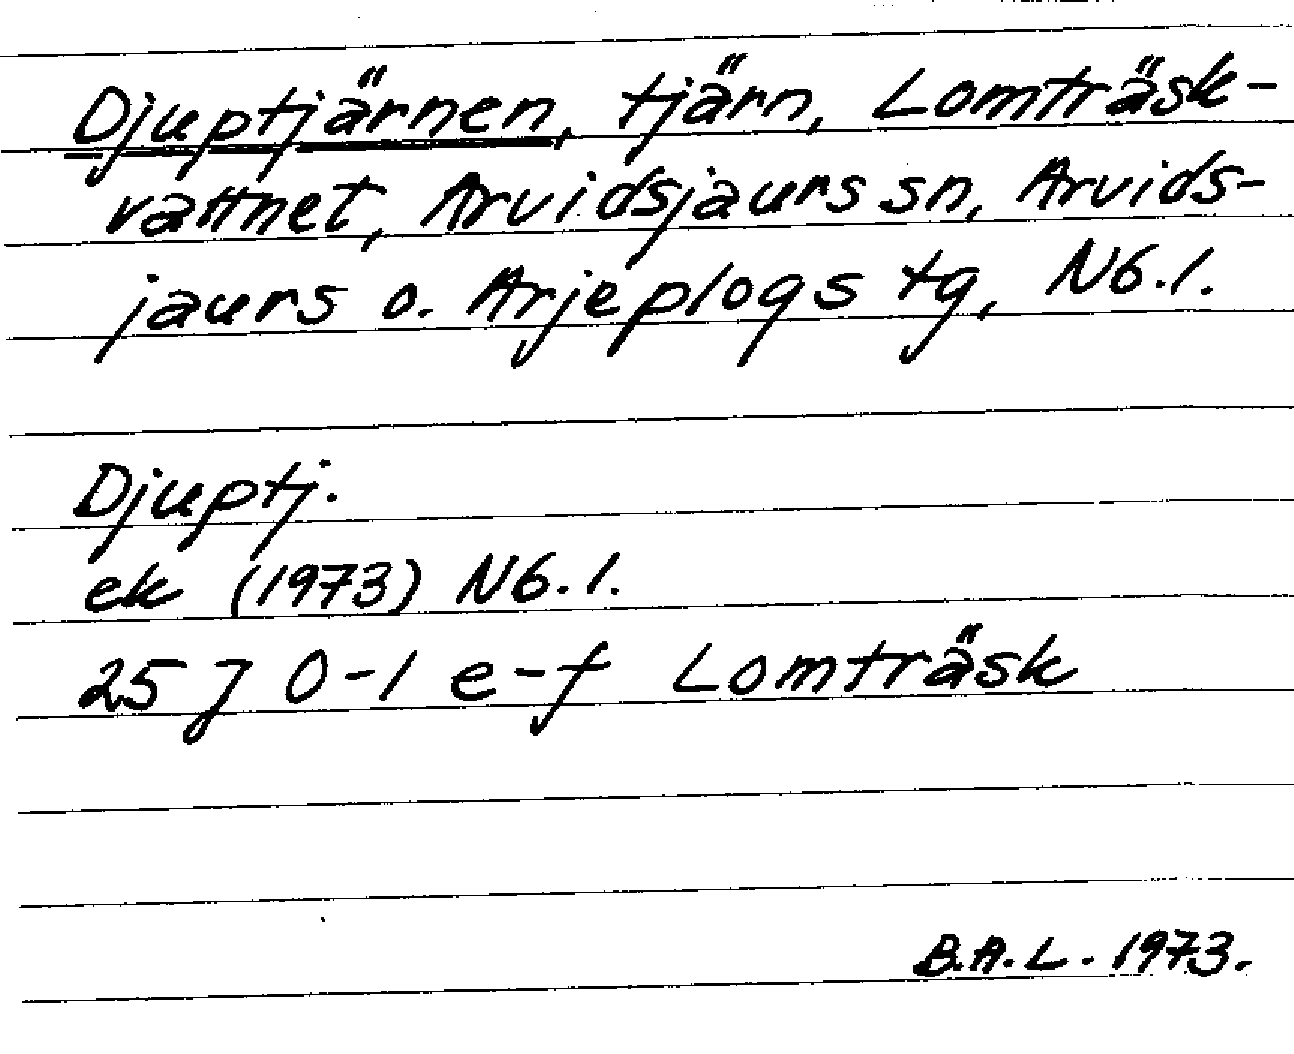 Djuptjärnen, tjärn, Lomträsk-
vattnet, Arvidsjaurs sn, Arvids-
jaurs o. Arjeplogs tg, N6.1.
Djuptj.
ek (1973) N6.1.
25 J 0-1 e-f Lomträsk
B.A.L. 1973.